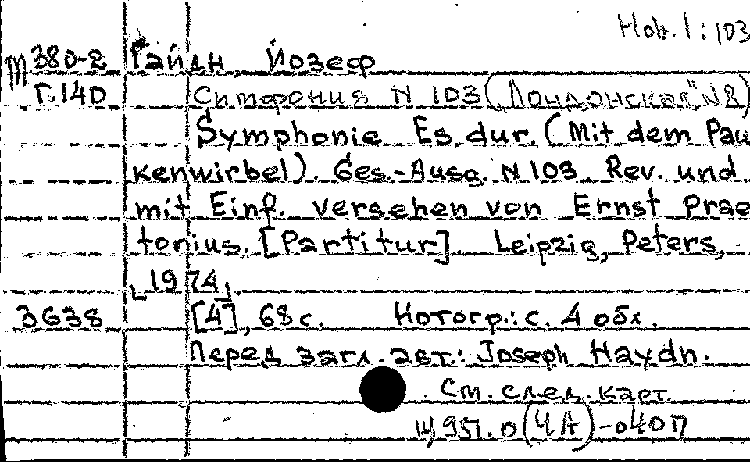 Hob. I : 103
m 380-2 Гайдн, Йозеф
Г.140 Симфония N 103 („Лондонская" N 8)
Symphonie Es dur. (Mit dem Pau
kenwirbel). Ges.-Ausg. N 103. Rev. und
mit Einf. versehen von Ernst Prae
torius. [Partitur] Leipzig, Peters,
1974.
3638 [4], 68 с. Нотогр.: с. 4 обл.
Перед загл. авт.: Joseph Haydn.
См. след. карт.
Щ957.0(4А)-040П